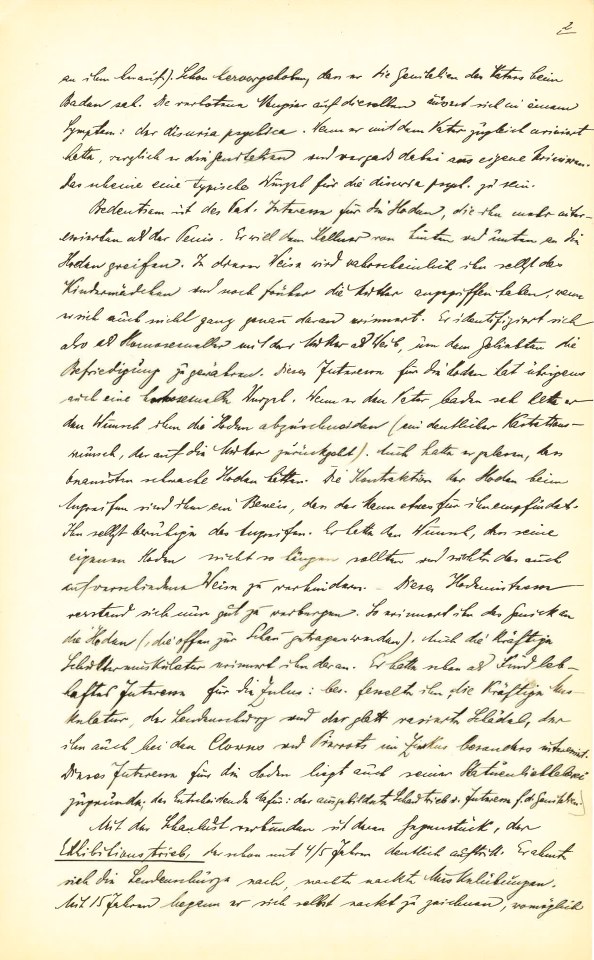 2
an ihm hinauf). Schon hervorgehoben, dass er die Genitalien des Vaters beim
Baden sah. Die verbotene Neugier auf dieselben äussert sich in einem
Symptom: der disuria psychica. Wenn er mit dem Vater zugleich uriniert
hatte, verglich er die Genitalien und vergass dabei aufs eigene Urinieren.
Das scheine eine typische Wurzel für die disuria psych. zu sein.
Bedeutsam ist des Pat. Interesse für die Hoden, die ihn mehr inter-
essierten als der Penis. Er will dem Kellner von hinten und unten an die
Hoden greifen. In dieser Weise wird wahrscheinlich ihn selbst das
Kindermädchen und noch früher die Mutter angegriffen haben, wenn
er sich auch nicht ganz genau daran erinnert. Er identifiziert sich
also als Homosexueller mit der Mutter als Weib, um dem Geliebten die
Befriedigung zu gewähren. Dieses Interesse für die Hoden hat übrigens
noch eine Wurzel. Wenn er den Vater baden sah hatte er
den Wunsch ihm die Hoden abzuschneiden (ein deutlicher Kastrations-
wunsch, der auf die Mutter zurückgeht). Auch hatte er gelesen, dass
schwache Hoden hätten. Die Kontraktion der Hoden beim
Angreifen sind ihm ein Beweis, dass der Mann etwas für ihn empfindet.
Ihn selbst beruhige das Angreifen. Er hatte den Wunsch, dass seine
eigenen Hoden nicht so hängen sollten und suchte das auch
auf verschiedene Weise zu verhindern. – Dieses Hodeninteresse
verstand sich nur gut zu verbergen. So erinnert ihn das Genick an
die Hoden (, die offen zur Schau getragen werden). Auch die kräftige
Schultermuskulatur erinnert ihn daran. Er hatte schon als Kind leb-
haftes Interesse für die Zulus: bes. fesselte ihn die kräftige Mus-
kulatur, der Lendenschurz und der glatt rasierte Schädel, der
ihn auch bei den Clowns und Pierrots im Zirkus besonders interessiert.
Dieses Interesse für die Hoden liegt auch seiner Statuenliebhaberei
zugrunde. das Entscheidende dafür: der ausgebildete Schautrieb u. Interesse f. d. Genitalien.)
Mit der Schaulust verbunden ist deren Gegenstück, der
Exhibitionstrieb, der schon mit 4/5 Jahren deutlich auftritt. Er ahmte
sich die Lendenschürze nach, machte nackte Muskelübungen.
Mit 15 Jahren begann er sich selbst nackt zu zeichnen, womöglich